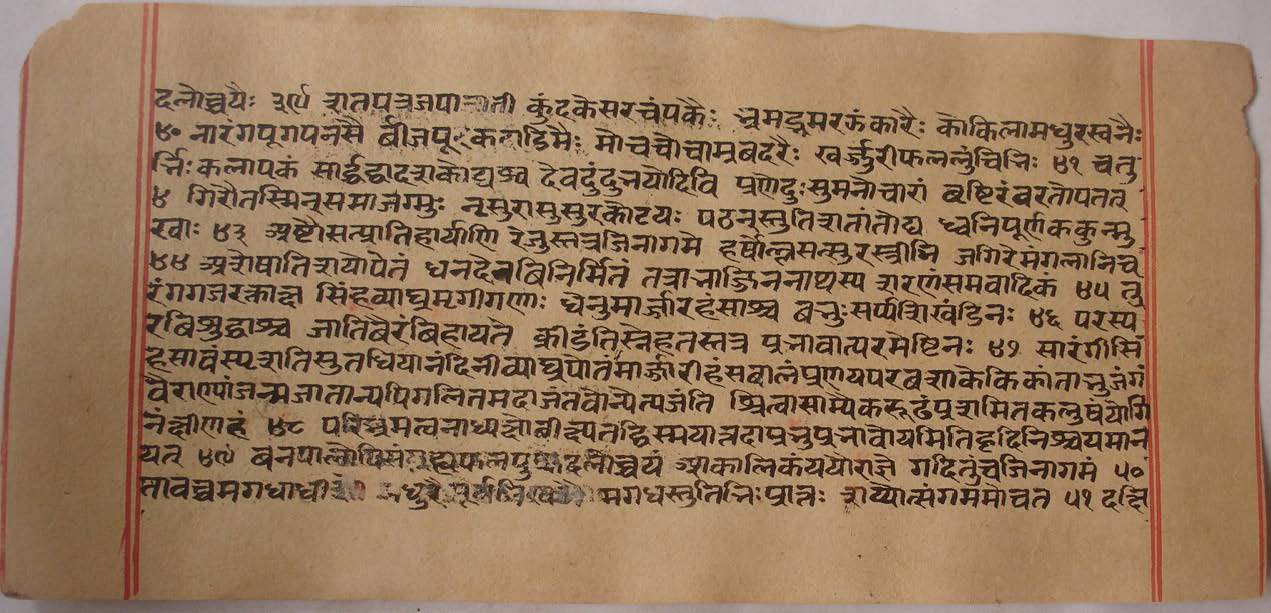 दलोच्चयैः ३९ शतपत्रजपाजाती कुंदकेसरचंपकैः भ्रमद्भ्रमरझंकारैः कोकिलामधुरस्वनैः
४० नारंगपूगपनसै र्बीजपूरकदाडिमैः मोचचोचाम्रबदरैः खर्जुरीफललुंबिभिः ४१ चतु
र्भिःकलापकं सार्द्धद्वादशकोट्यश्च देवदुंदुभयोदिवि प्रणेदुःसुमनोचारां वृष्टिरंबरतोपतत्
४ गिरौतस्मिन्समाजग्मुः नृसुरासुसुरकोटयः पठन्स्तुतिशतातोद्य ध्वनिपूर्णककुन्मु
खाः ४३ अष्टौसत्प्रातिहार्याणि रेजुस्तत्रजिनागमे हर्षोत्फुल्लसत्सुरस्त्रीभि जगिरेमंगलानिच
४४ अशेषातिशयोपेतं धनदेनबिनिर्मितं तत्राभाज्जिननाथस्य शरणंसमवादिकं ४५ तु
रंगगजरक्ताक्षा सिंहव्याघ्रमृगीगणाः धेनुमार्जारहंसाश्च बभ्रुःसर्प्पशिखंडिनः ४६ परस्प
रबिशुद्धाश्च जातिवैरंबिहायते क्रीडंतिस्नेहतस्तत्र प्रभावात्परमेष्टिनः ४७ सारंगीसिं
हसावंस्पृशतिसुतधियानंदिनीव्याघ्रपोतंमार्जारीहंसबालंप्रणयपरवशाकेकिकांताभुजंगं
वैराण्याजन्मजातान्यपिगलितमदाजंतवोन्येत्यजंति श्रित्वासाम्यैकरूढंप्रशमितकलुषंयोगि
नंक्षीणमोहं ४८ परिभ्रमत्वनाध्यक्षो वीक्ष्यतद्विस्मयात्तदाप्रभुप्रभावोयमितिहृदिनिश्चयमान
यत् ४९ बनपालोपिसंगृह्यफलपुष्पदलोच्चयं आकालिकंययौराज्ञे गदितुंचजिनागमं ५०
तावच्चमगधाधीशो मगधस्तुतिभिःप्रातः शय्योत्संगममोचत ५१ दक्षि